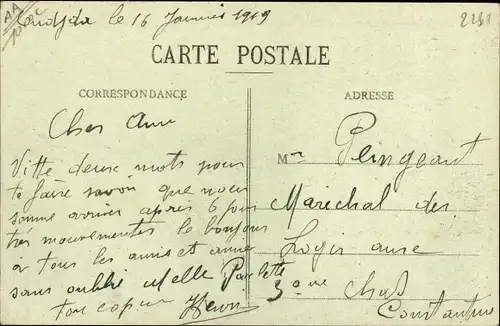 Oudjda le 16 Janvier 1919
CARTE POSTALE
CORRESPONDANCE
Cher Ami
Vitte deux mots pour
te faire savoir que nous
somme arrivér après 6 jours
très mouvementés le bonjour
à tous les amis et amie
sans oublié Melle Paulette
ton copin Henri
ADRESSE
Mr Peingeant
Maréchal des
Logis aux
3eme Chas
Constantine